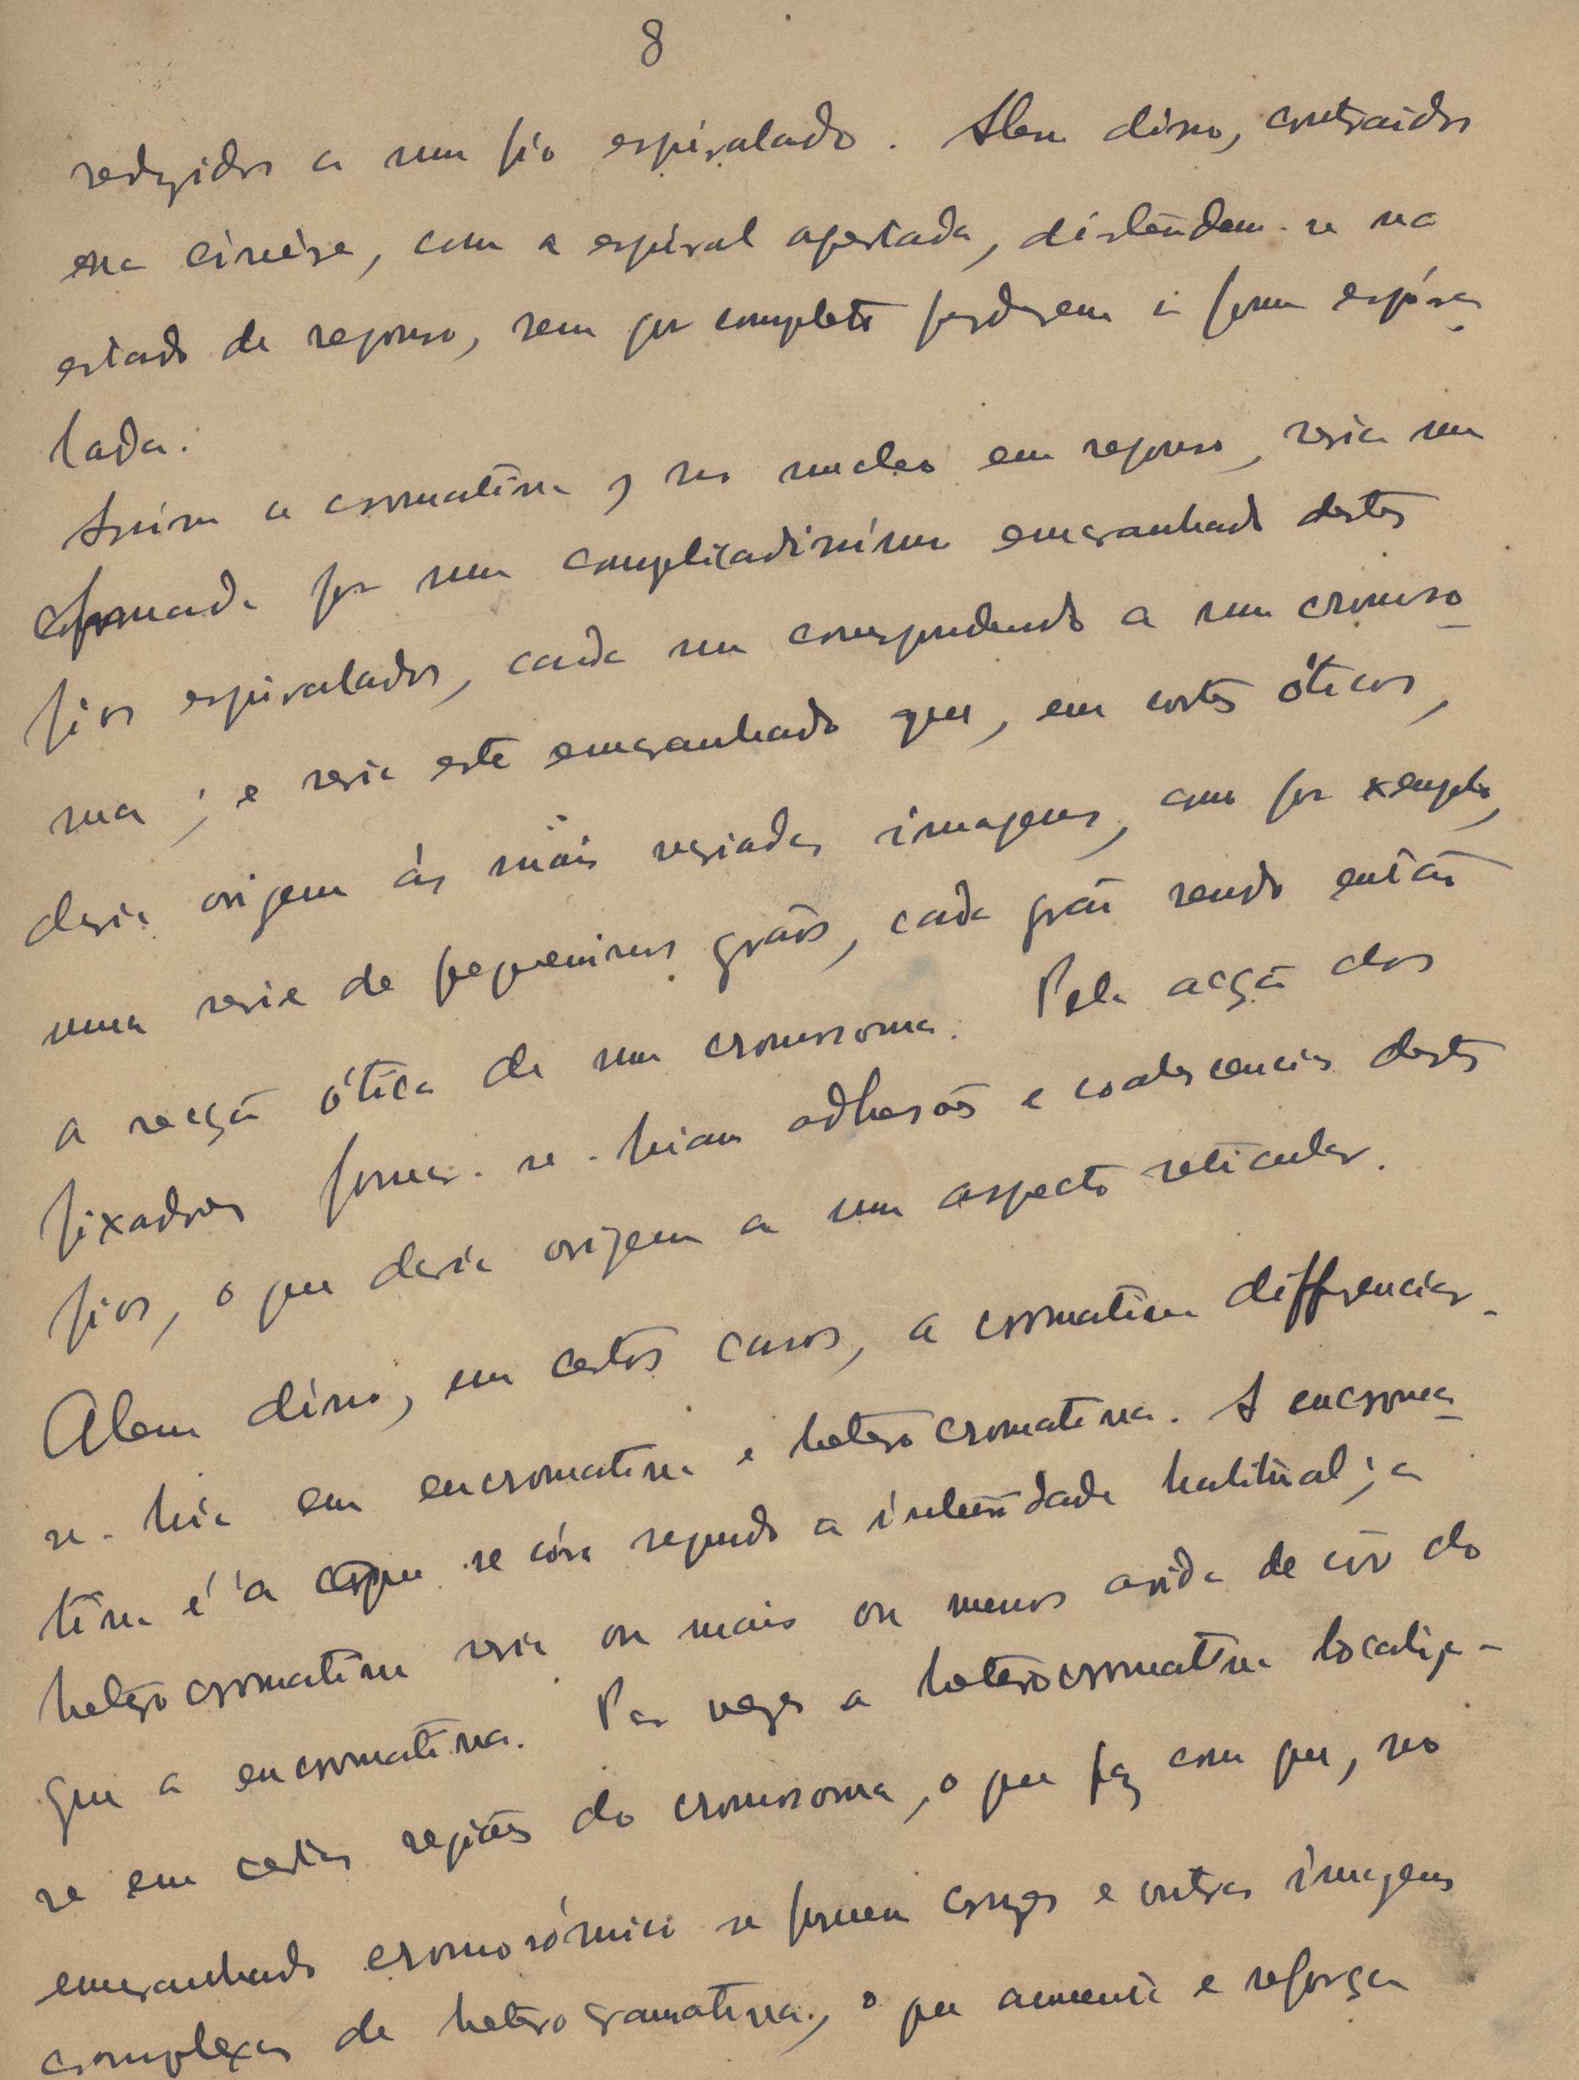 8
reduzidos a um fio espiralado. Alem disso, contraidos
na cinése, com a espiral apertada, distendem-se no
estado de repouso, sem por completo perderem a forma espira-
lada.
Assim a cromatina, no nucleo em repouso, seria
formada por um complicadissimo emaranhado destes
fios espiralados, cada um correspondendo a um cromoso-
ma; e seria este emaranhado que, em cortes óticos,
daria origem ás mais variadas imagens, como por exemplo,
uma serie de pequeninos grãos, cada grão sendo então
a secção ótica de um cromosoma. Pela acção dos
fixadores formar-se-hiam adhesões e coalescencias destes
fios, o que daria origem a um aspecto reticular.
Alem disso, em certos casos, a cromatina differenciar-
se-hia em eucromatina e heterocromatina. A eucroma-
tina é a que se córa segundo a intensidade habitual; a
heterocromatina seria ou mais ou menos avida de côr do
que a eucromatina. Por vezes a heterocromatina localiza-
se em certas regiões do cromosoma, o que faz com que, no
emaranhado cromosómico se formem cruzes e outras imagens
complexas de heterocromatina, o que aumenta e reforça